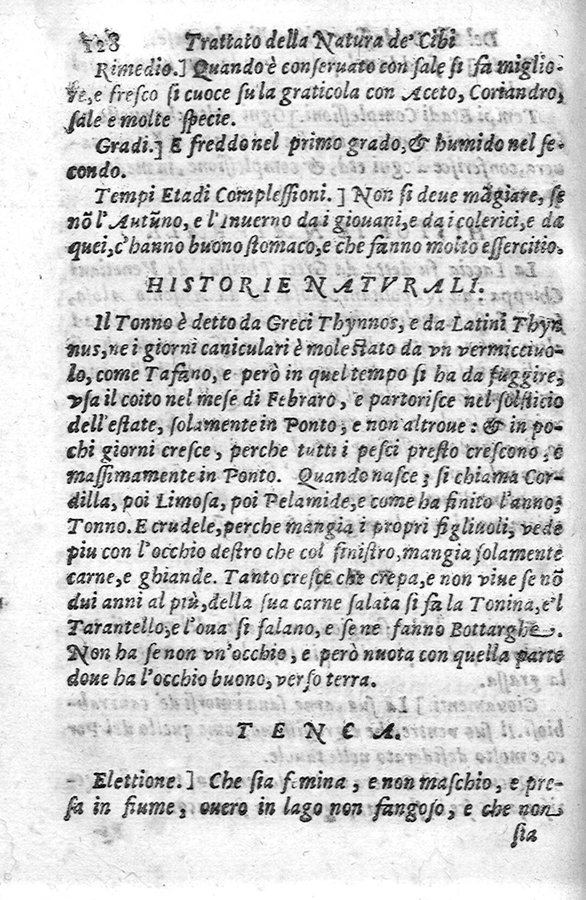 128 Trattato della Natura de' Cibi
Rimedio.] Quando è conseruato con sale si fa miglio-
re, e fresco si cuoce su la graticola con Aceto, Coriandro,
sale e molte specie.
Gradi.] E freddo nel primo grado, & humido nel se-
condo.
Tempi Etadi Complessioni.] Non si deue mãgiare, se
nõ l'Autũno, e l'Inuerno da i giouani, e da i colerici, e da
quei, c'hanno buono stomaco, e che fanno molto essercitio.
HISTORIE NATVRALI.
Il Tonno è detto da Greci Thynnos, e da Latini Thyn
nus, ne i giorni caniculari è molestato da vn vermicciuo-
lo, come Tafano, e però in quel tempo si ha da fuggire,
vsa il coito nel mese di Febraro, e partorisce nel solsticio
dell'estate, solamente in Ponto, e non altroue: & in po-
chi giorni cresce, perche tutti i pesci presto crescono, e
massimamente in Ponto. Quando nasce, si chiama Cor-
dilla, poi Limosa, poi Pelamide, e come ha finito l'anno,
Tonno. E crudele, perche mangia i propri figliuoli, vede
piu con l'occhio destro che col sinistro, mangia solamente
carne, e ghiande. Tanto cresce che crepa, e non viue se nõ
dui anni al più, della sua carne salata si fa la Tonina, e'l
Tarantello, e l'oua si salano, e se ne fanno Bottarghe.
Non ha se non vn'occhio, e però nuota con quella parte
doue ha l'occhio buono, verso terra.
TENCA.
Elettione.] Che sia femina, e non maschio, e pre-
sa in fiume, ouero in lago non fangoso, e che non
sia